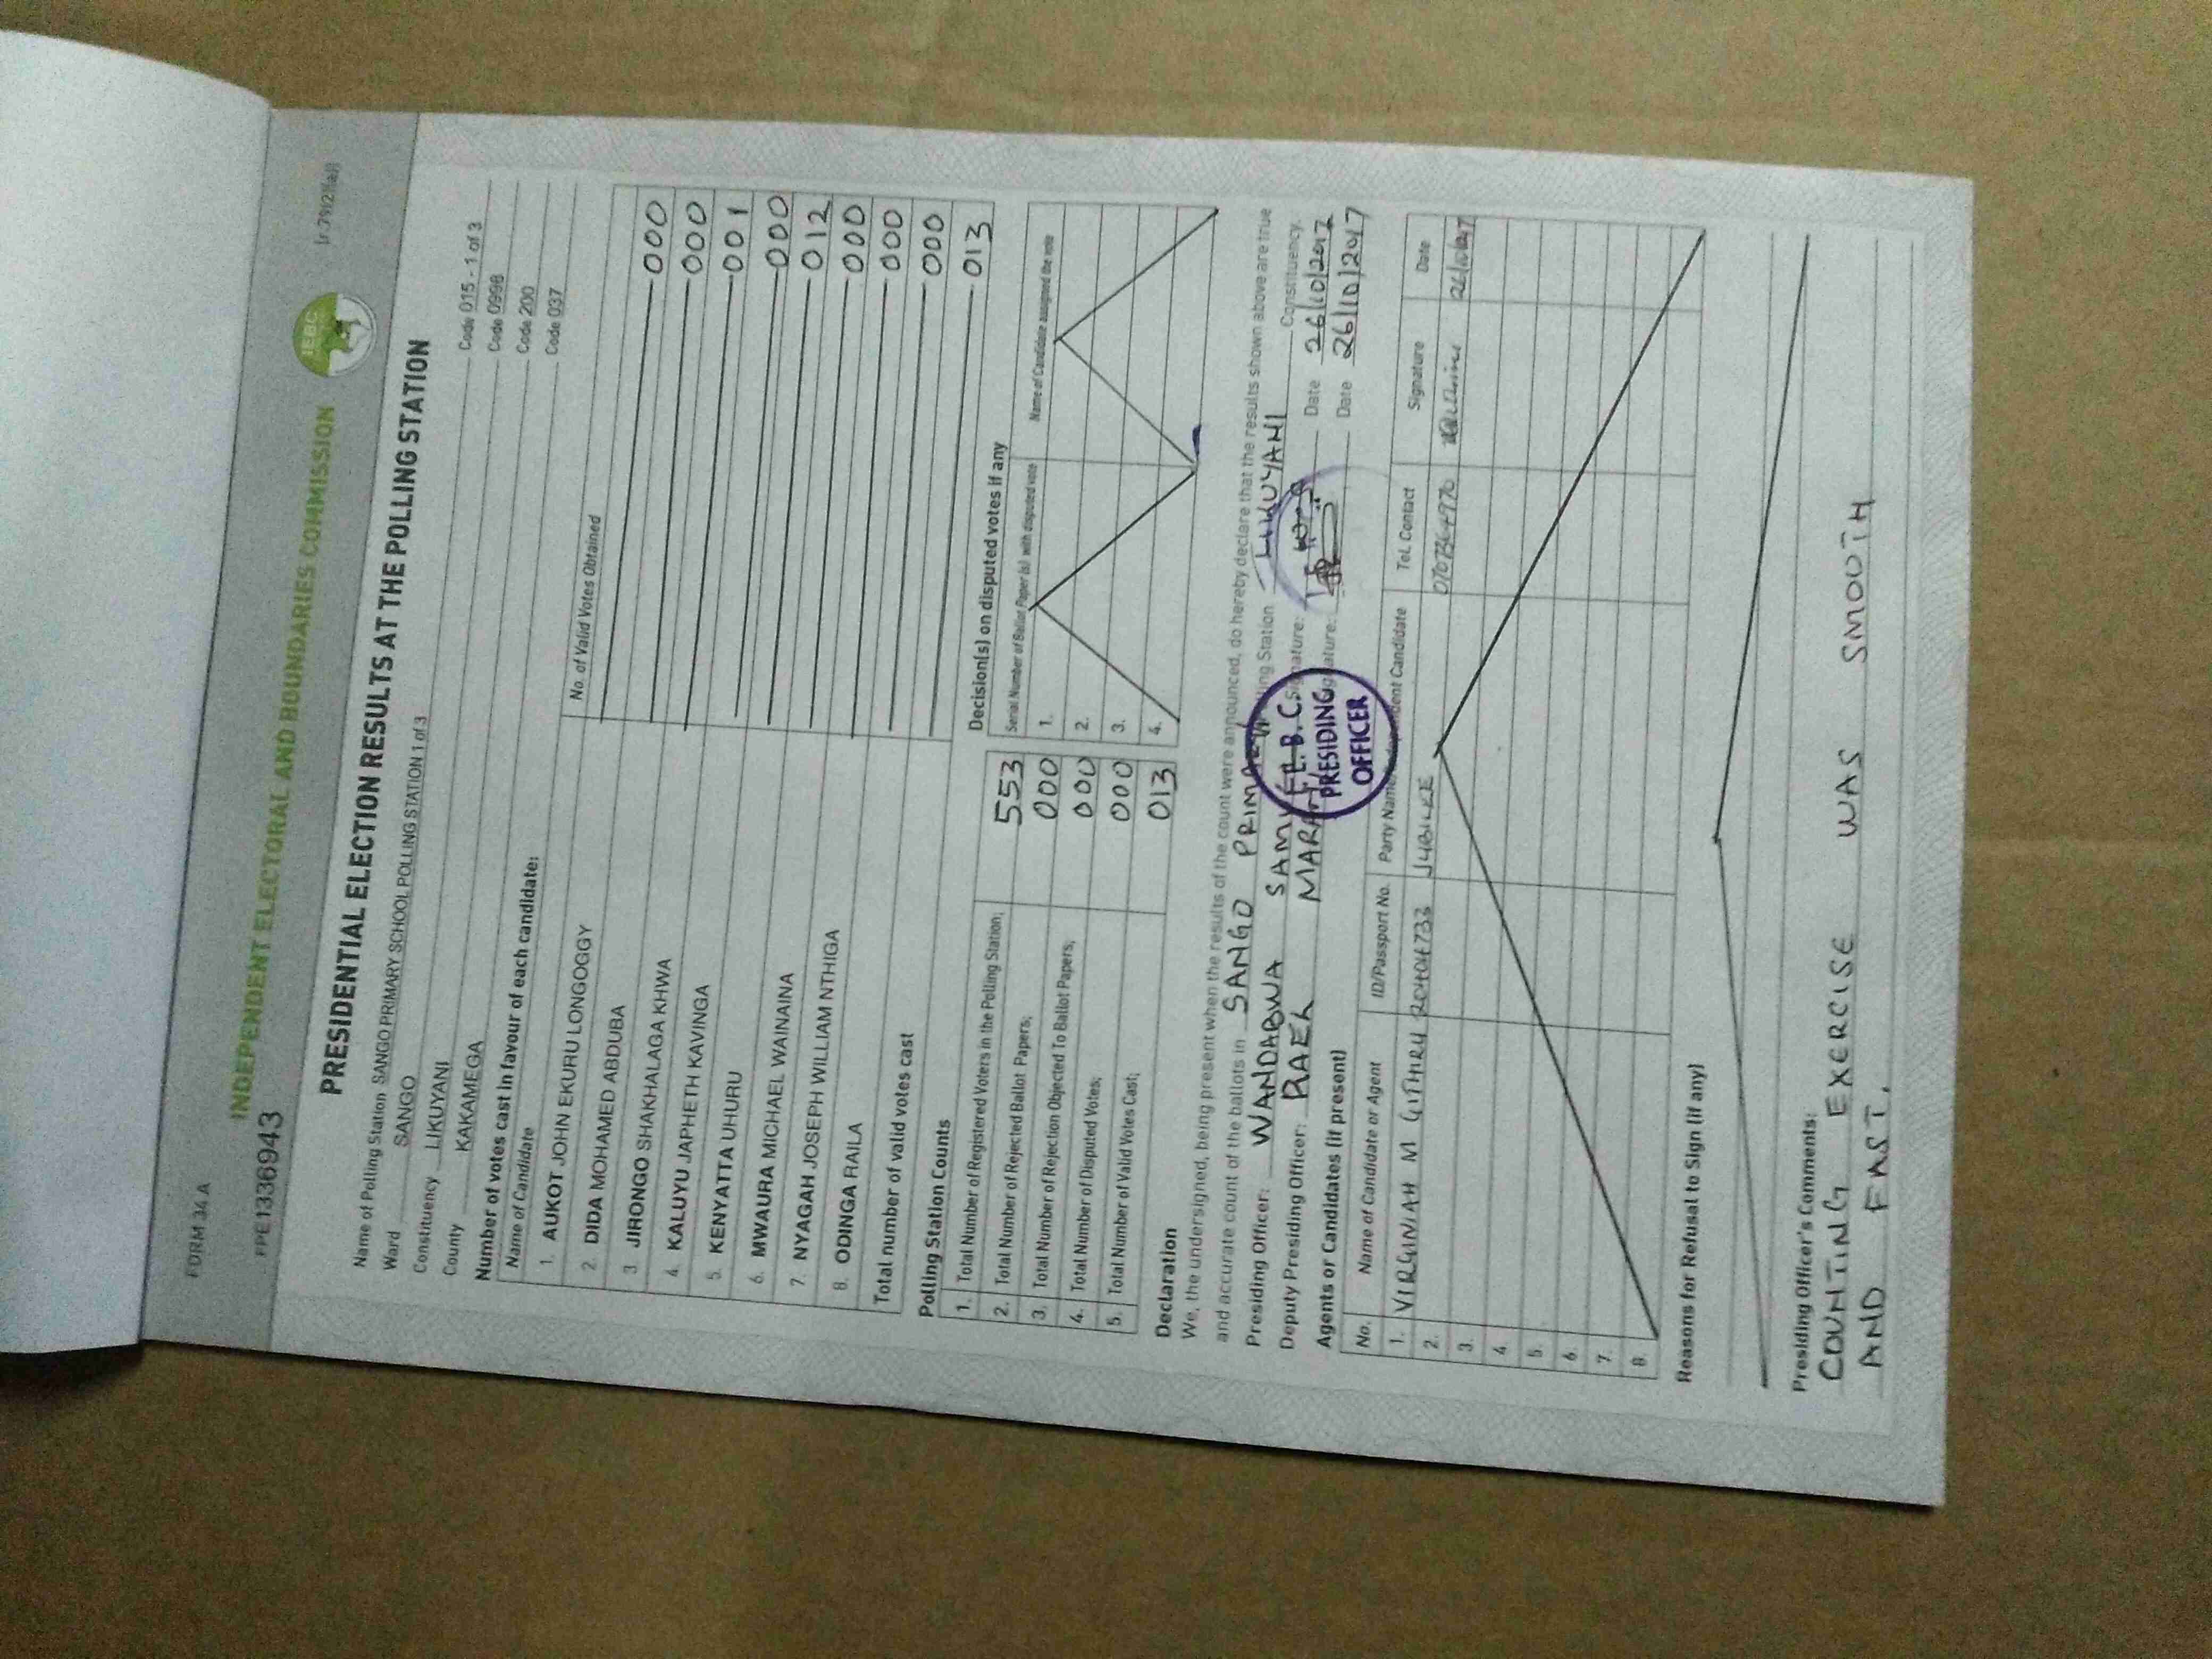 FORM 34 A
INDEPENDENT ELECTORAL AND BOUNDARIES COMMISSION
IEBC
PPE1336943
(r.79(2)(a))
PRESIDENTIAL ELECTION RESULTS AT THE POLLING STATION
Name of Polling Station SANGO PRIMARY SCHOOL POLLING STATION 1 of 3 Code 015 - 1 of 3
Ward SANGO Code 0998
Constituency LIKUYANI Code 200
County KAKAMEGA Code 037
Number of votes cast in favour of each candidate:
Name of Candidate No. of Valid Votes Obtained
1. AUKOT JOHN EKURU LONGOGGY 000
2. DIDA MOHAMED ABDUBA 000
3 JIRONGO SHAKHALAGA KHWA 001
4. KALUYU JAPHETH KAVINGA 000
5. KENYATTA UHURU 012
6. MWAURA MICHAEL WAINAINA 000
7. NYAGAH JOSEPH WILLIAM NTHIGA 000
8. ODINGA RAILA 000
Total number of valid votes cast 013
Polling Station Counts
1. Total Number of Registered Voters in the Polling Station; 553
2. Total Number of Rejected Ballot Papers; 000
3. Total Number of Rejection Objected To Ballot Papers; 000
4. Total Number of Disputed Votes; 000
5. Total Number of Valid Votes Cast; 013
Decision(s) on disputed votes if any
Serial Number of Ballot Paper (s) with disputed vote Name of Candidate assigned the vote
1.
2.
3.
4.
Declaration
We, the undersigned, being present when the results of the count were announced, do hereby declare that the results shown above are true
and accurate count of the ballots in SANGO PRIMARY Polling Station LIKUYANI Constituency.
Presiding Officer: WANDABWA SAMUEL Signature: Date 26/10/2017
Deputy Presiding Officer: RAEL Signature: Date 26/10/2017
I.E.B.C.
PRESIDING
OFFICER
Agents or Candidates (if present)
No. Name of Candidate or Agent ID/Passport No. Party Name/Independent Candidate Tel. Contact Signature Date
1. VIRGINIAH M GITHRY JUBILEE
2.
3.
4.
5.
6.
7.
8.
Reasons for Refusal to Sign (if any)
Presiding Officer's Comments:
COUNTING EXERCISE WAS SMOOTH
AND FAST.